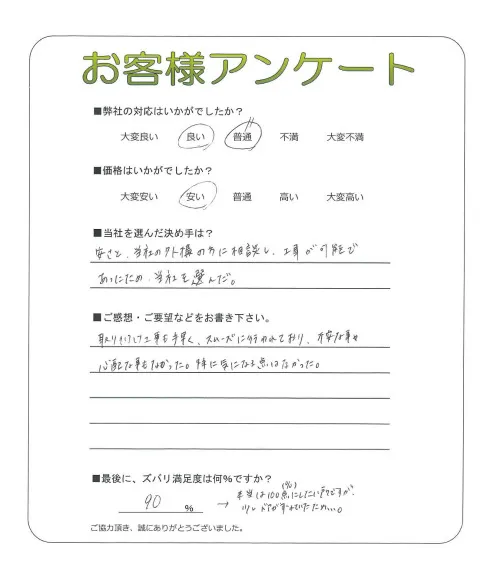 お客様アンケート
■弊社の対応はいかがでしたか？
大変良い 良い 普通 不満 大変不満
■価格はいかがでしたか？
大変安い 安い 普通 高い 大変高い
■当社を選んだ決め手は？
安さと、当社の外構の方に相談し、工事が可能で
あったため、当社を選んだ。
■ご感想・ご要望などをお書き下さい。
取り付け工事も手早く、スムーズに行われており、不安な事や
心配な事もなかった。特に気になる点はなかった。
■最後に、ズバリ満足度は何%ですか？
90 %
→ 本当は100点(%)にしたい所ですが、
少しドアが
ご協力頂き、誠にありがとうございました。